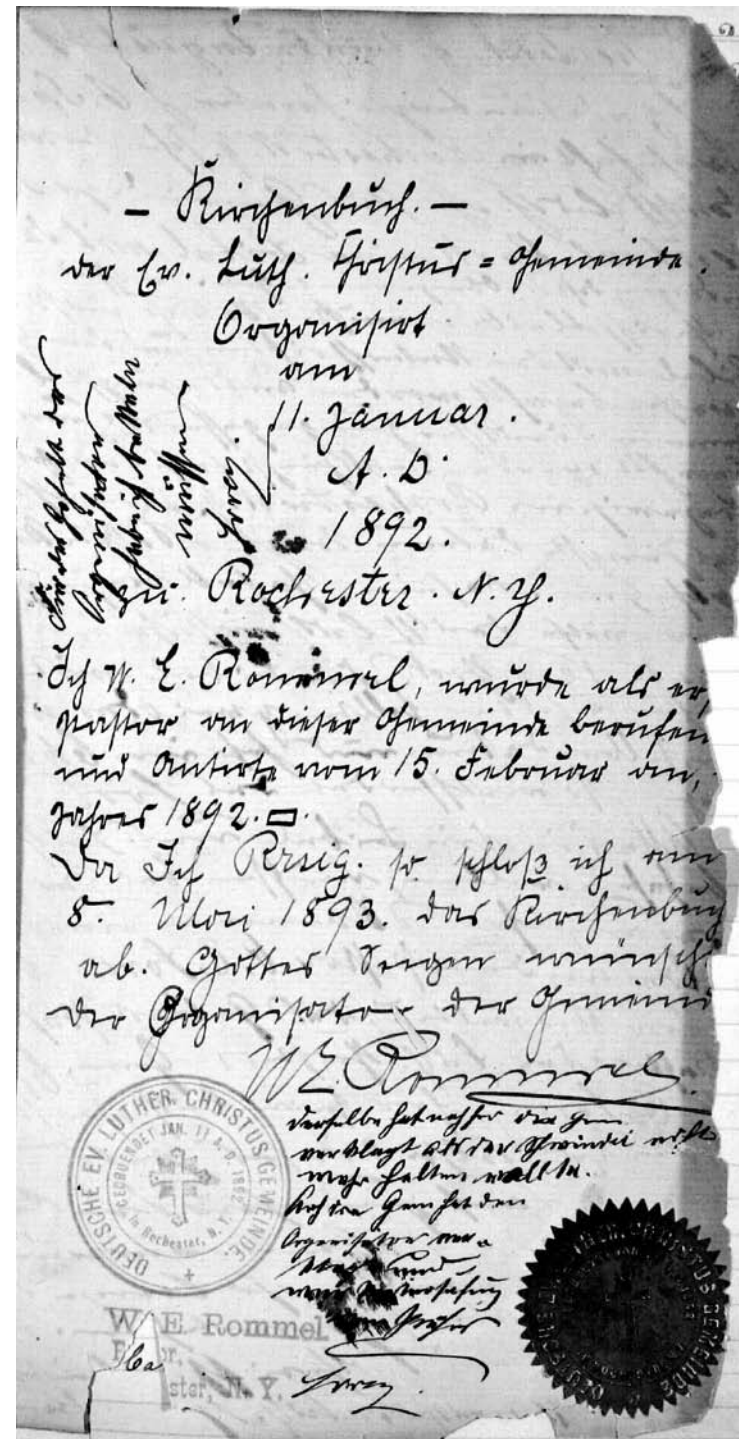 — Kirchenbuch. —
der Ev. Luth. Christus = Gemeinde.
Organisirt
am
11. Januar.
A. D.
1892.
zu Rochester. N. Y.
Für der Gehalt des
Organisten
habe ich
müssen
Ich W. E. Rommel, wurde als er,
Pastor an dieser Gemeinde berufen
und Antirte vom 15. Februar an,
Jahres 1892.
Da Ich Resig. so schloß ich am
8. Mai 1893. das Kirchenbuch
ab. Gottes Seegen wünscht
Der Organisator der Gemeind
W E. Rommel.
derselbe hat nachher die Gem
verklagt als der Schwindel nicht
mehr halten wollte.
Gem hat den
Organisator
und
DEUTSCHE EV. LUTHER. CHRISTUS GEMEINDE.
GEGRUENDET JAN. 11 A.D. 1892
in Rochester, N. Y.
W. E. Rommel
ster, N. Y.